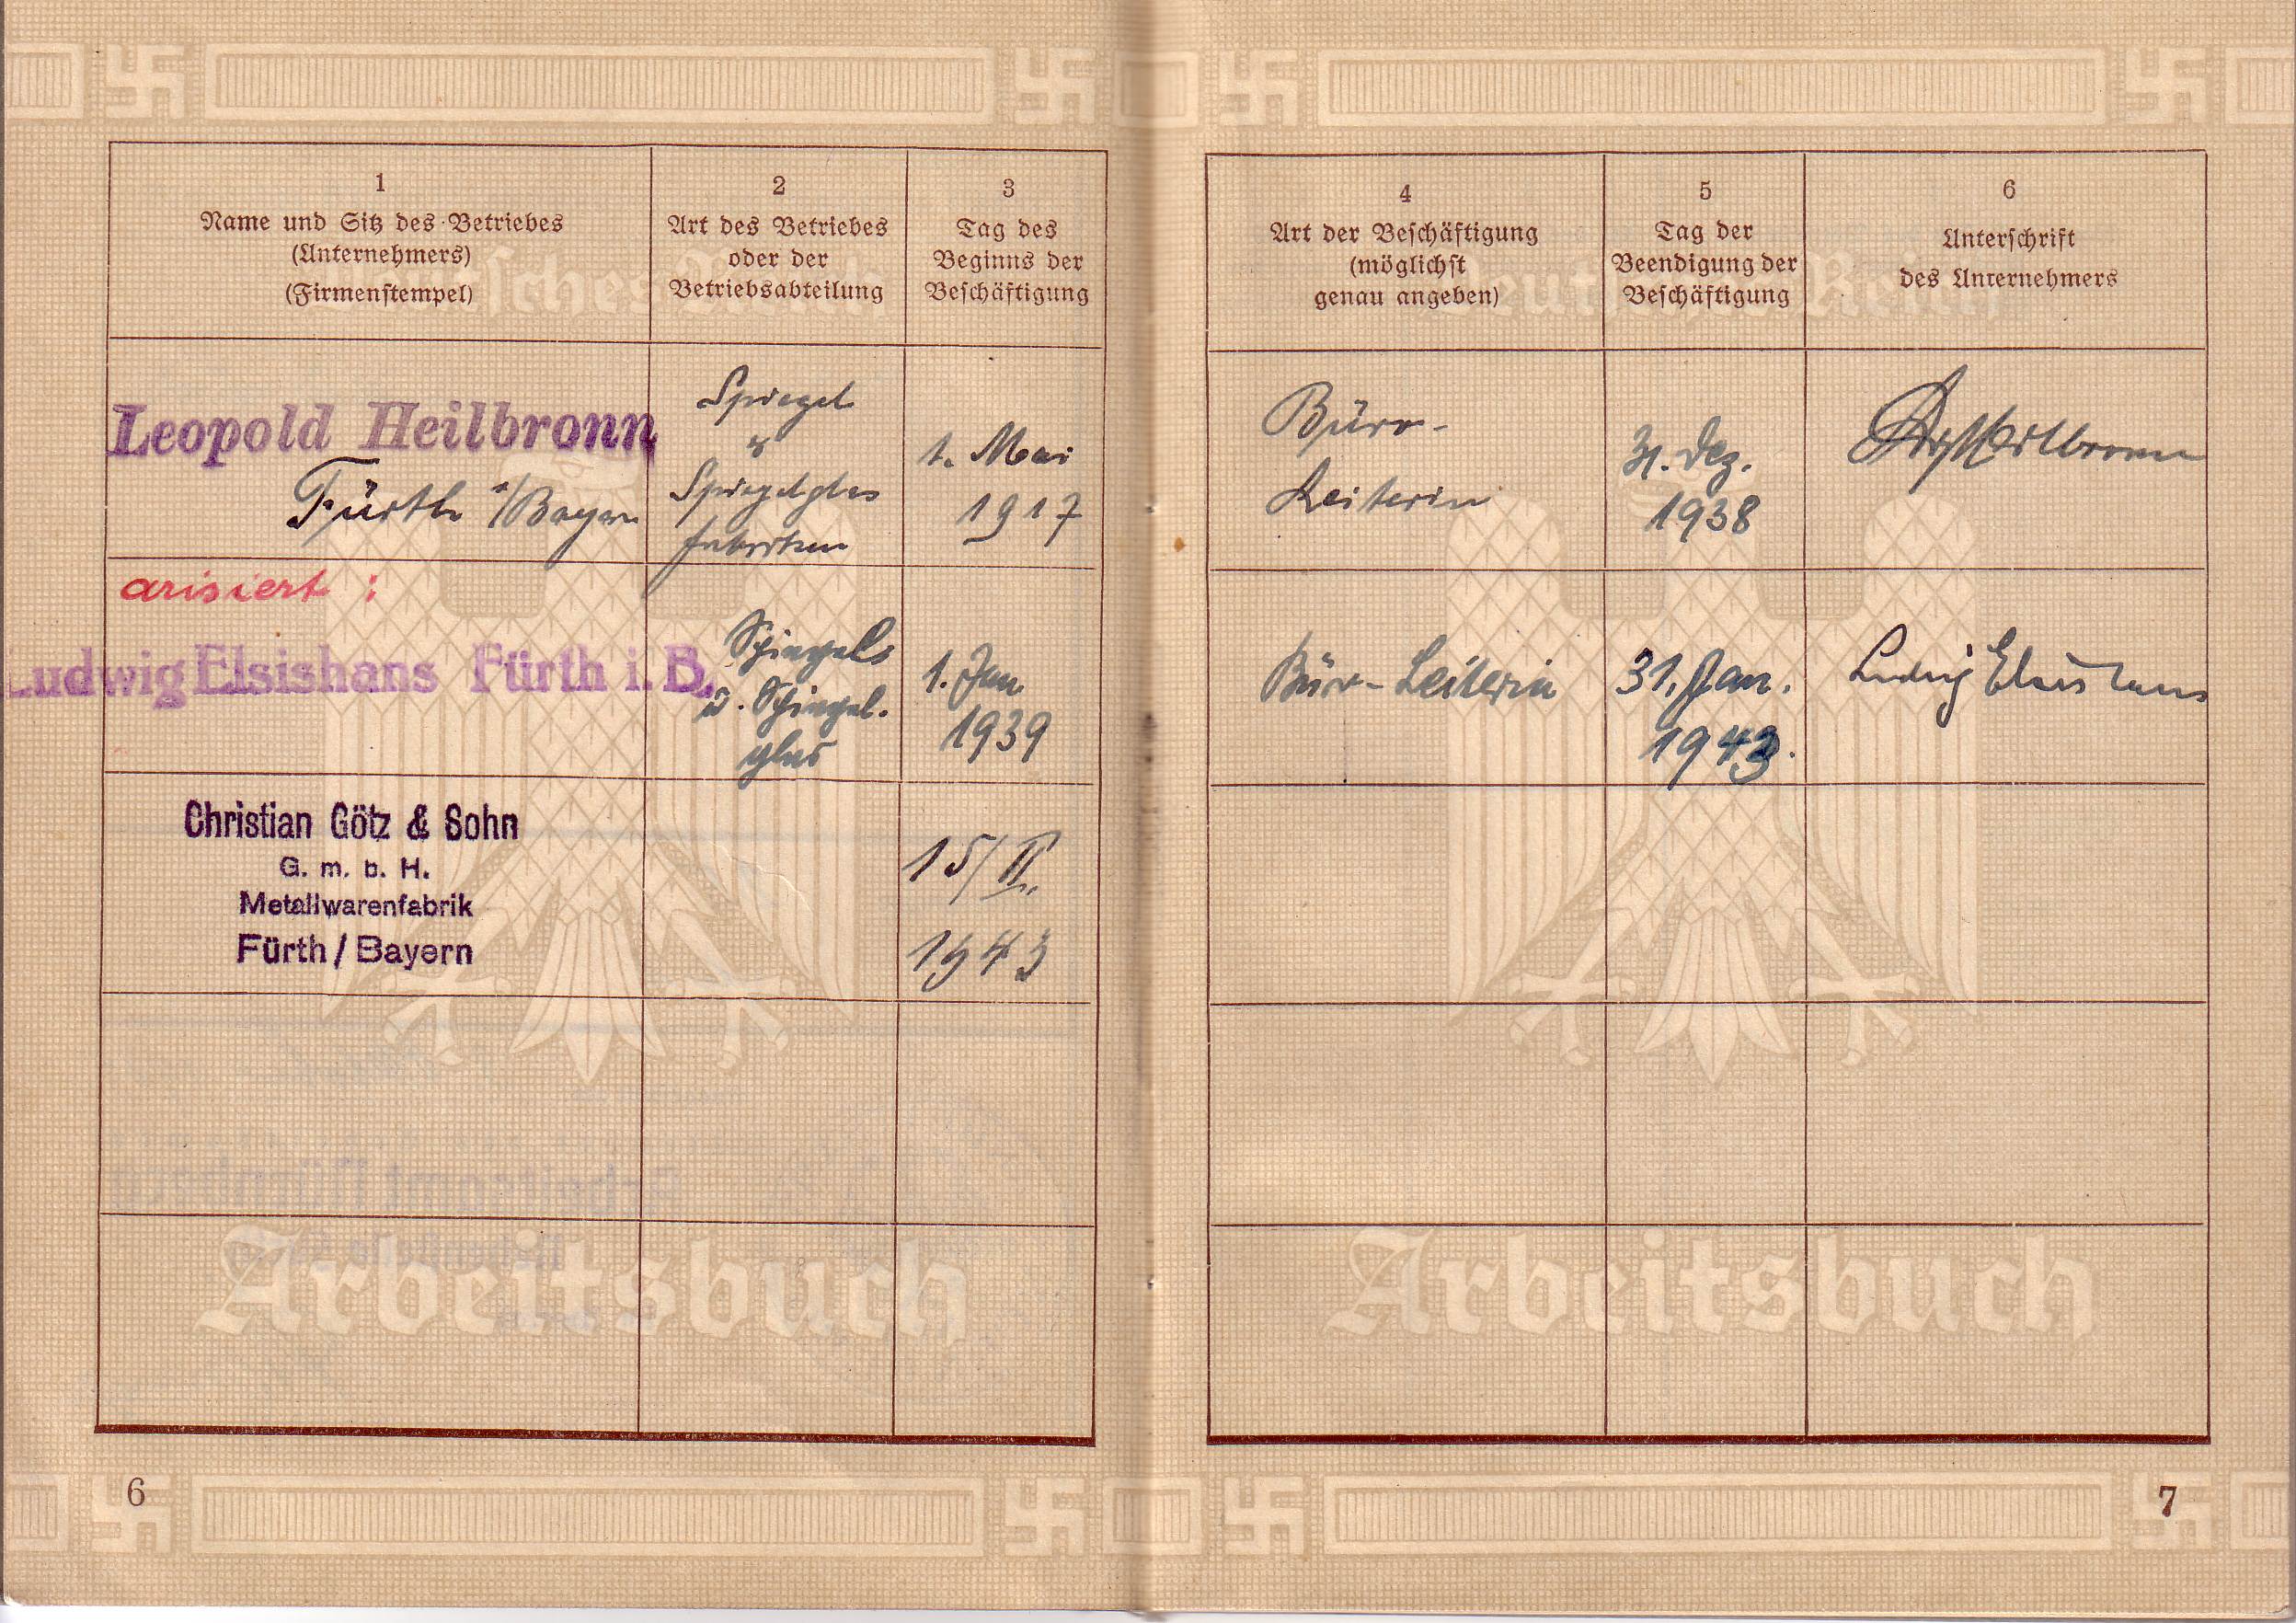 1
Name und Sitz des Betriebes
(Unternehmers)
(Firmenstempel)
2
Art des Betriebes
oder der
Betriebsabteilung
3
Tag des
Beginns der
Beschäftigung
4
Art der Beschäftigung
(möglichst
genau angeben)
5
Tag der
Beendigung der
Beschäftigung
6
Unterschrift
des Unternehmers
Leopold Heilbronn
Fürth i/Bayern
Spiegel
&
Spiegelglas
fabriken
1. Mai
1917
Büro-
Leiterin
31. Dez.
1938
Heilbronn
arisiert :
Ludwig Elsishans Fürth i. B.
Spiegel
u. Spiegel-
glas
1. Jan.
1939
Büro-Leiterin
31. Jan.
1943.
Ludwig Elsishans
Christian Götz & Sohn
G. m. b. H.
Metallwarenfabrik
Fürth / Bayern
15/II.
1943
Deutsches Reich
Deutsches Reich
Arbeitsbuch
Arbeitsbuch
6
7